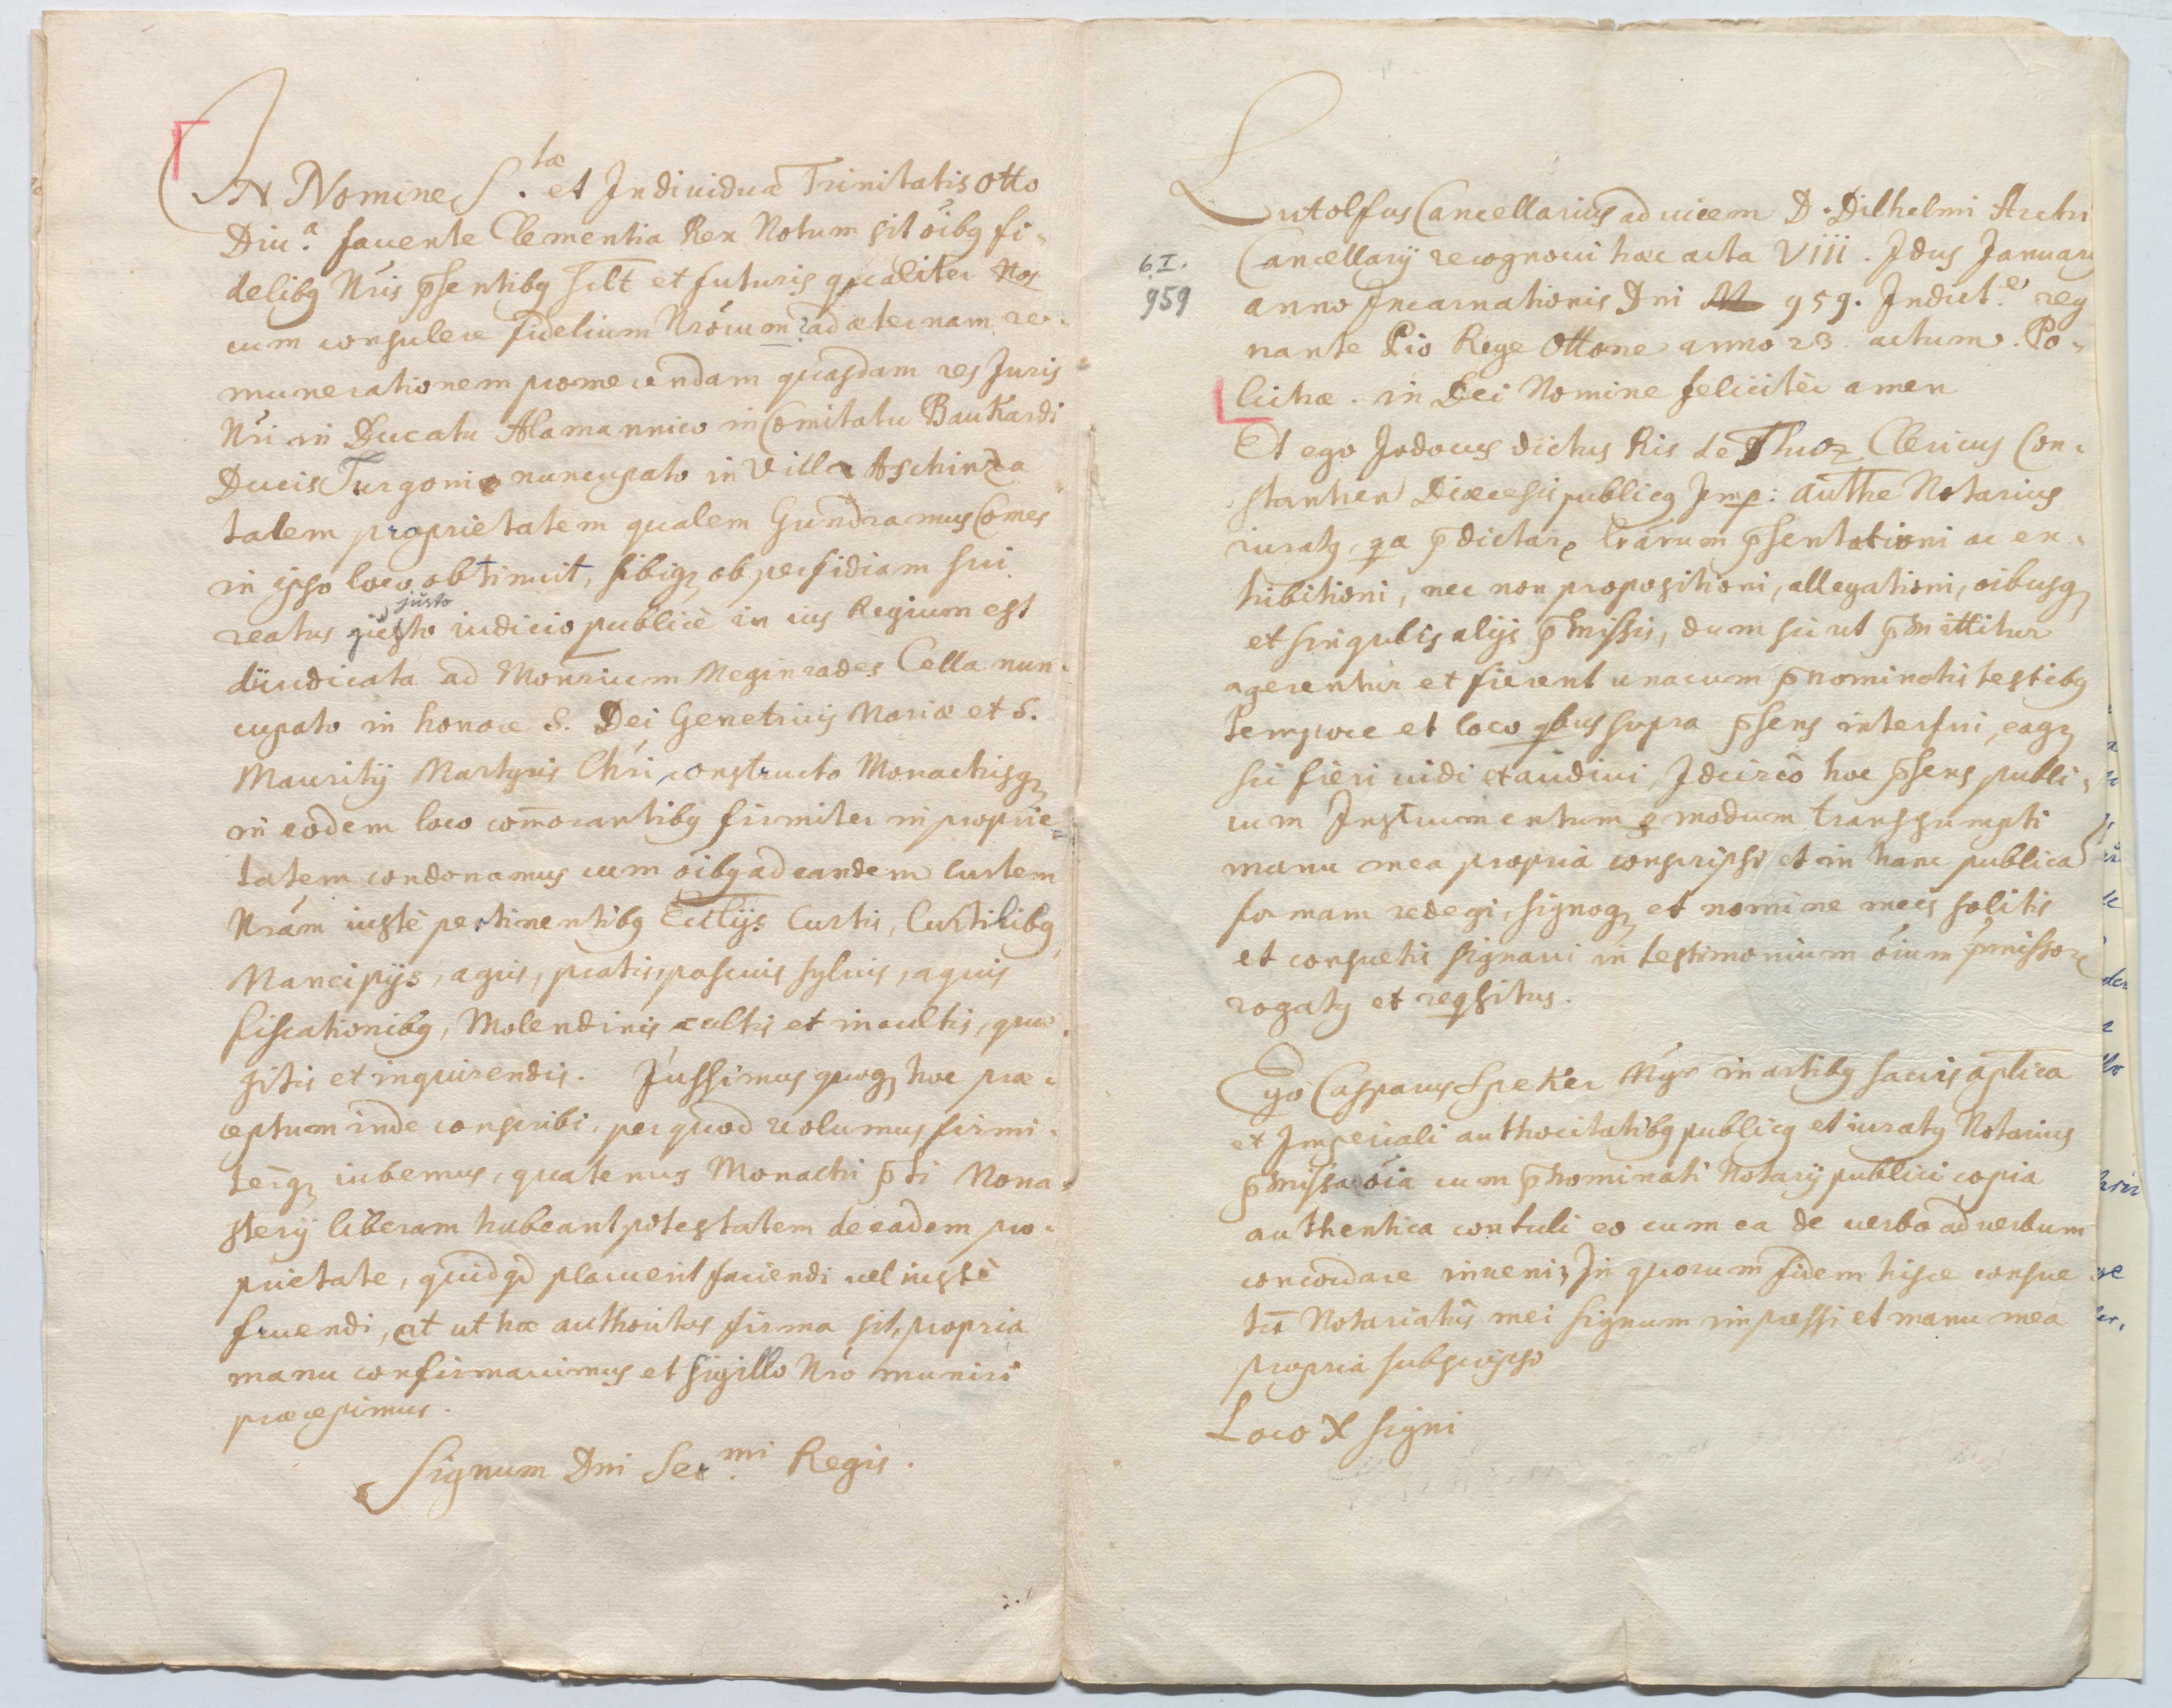 In Nomine S.tæ et Indiuiduæ Trinitatis Otto
Diu.ª fauente Clementia Rex Notum sit oibq fi-
delibq Nris psentibq scilt et futuris qualiter Nos
cum consulere fidelium Nrorum ad æternam re-
munerationem promerendam quasdam res Juris
Nri in Ducatu Alamannico in Comitatu Baukardi
Ducis Turgonie nuncupato in Villa Aschinza
talem proprietatem qualem Gundramus Comes
in ipso loco obtinuit, sibiq ob perfidiam sui
justo
reatus justo iudicio publicè in ius Regium est
diiudicata ad Monrium Meginrades Cella nun-
cupato in honore S. Dei Genetricis Mariæ et S.
Mauritij Martyris Chri constructo Monachisq
in eodem loco comorantibq firmiter in proprie=
tatem condonamus cum oibq ad eandem curtem
Nram iustè pertinentibq Ecclijs Curtis, Curtilibq
Mancipijs, agris, pratis, pascuis syluis, aquis
piscationibq, Molendinis cultis et incultis, quæ-
sitis et inquirendis. Jussimus quoq hoc præ-
ceptum inde conscribi, per quod uolumus firmi-
terq iubemus, quatenus Monachi pti Mona-
sterij liberam habeant potestatem de eadem pro-
prietate, quidqd placuerit faciendi uel iustè
fruendi, at ut hæc authoritas firma sit, propria
manu confirmauimus et sigillo Nro muniri
præcepimus.
Signum Dni Ser.mi Regis.
Lutolfus Cancellarius ad uicem D. Dilhelmi Archi
Cancellarij recognoui hæc acta VIII. Idus Januarij
6.I.
959
anno Incarnationis Dni 959. Indict.e reg
nante Pio Rege Ottone anno 23. actum. Po-
lichæ. in Dei Nomine feliciter amen
Et ego Jodocus dictus Ris de Thuoz Clericus Con-
stantien Diœcesis publicq Imp: authe Notarius
iuratq, qa pdictar lrarum psentationi ac ex-
hibitioni, nec non propositioni, allegationi, oibusq
et singulis alijs pmissis, dum sic ut pmittitur
agerentur et fierent unacum pnominatis testibq
tempore et loco qbus supra psens interfui, eaq
sic fieri uidi et audiui, Idcircò hoc psens publi-
cum Instrumentum p modum transsumpti
manu mea propria conscripsi et in hanc publica
formam redegi, signoq et nomine meis solitis
et consuetis signaui in testimonium oium pmissor
rogatq et reqsitus.
Ego Casparus Speker Mgr in artibq sacris aplica
et Imperiali authoritatibq publicq et iuratq Notarius
pmissa oia cum pnominati Notarij publici copia
authentica contuli eo cum ea de uerbo ad uerbum
concordare inueni, In quorum fidem hisce consue
tu Notariatus mei signum impressi et manu mea
propria subscripsi
Loco X signi